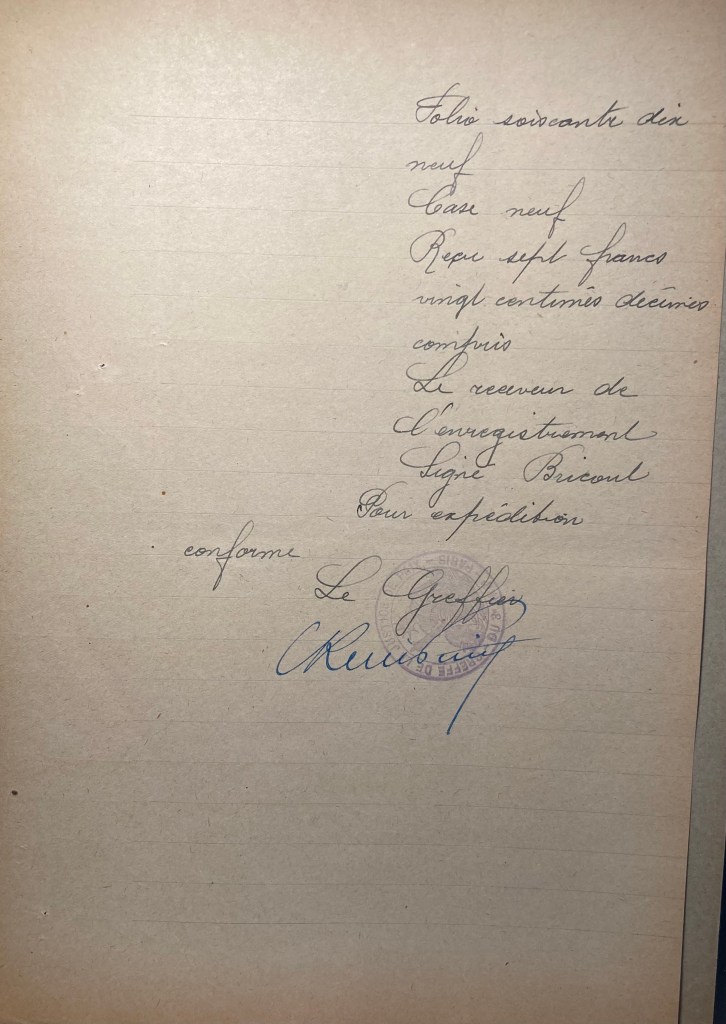 Folio soiscante dix
neuf
Case neuf
Reçu sept francs
vingt centimes décimes
compris
Le receveur de
l'enregistrement
Signé Bricout
Pour expédition
conforme
Le Greffier
GREFFE DE LA JUSTICE DE PAIX DU PARIS